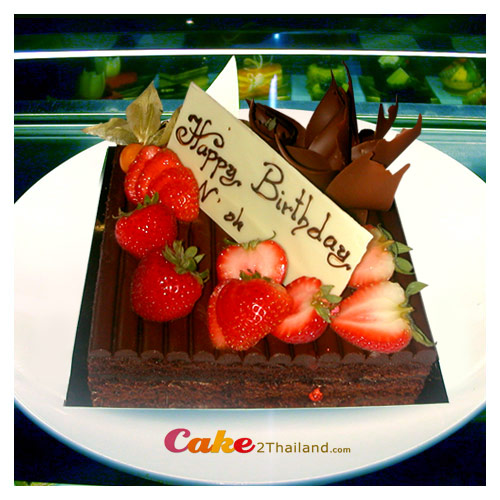 Happy Birthday
N' oh
Cake2Thailand.com